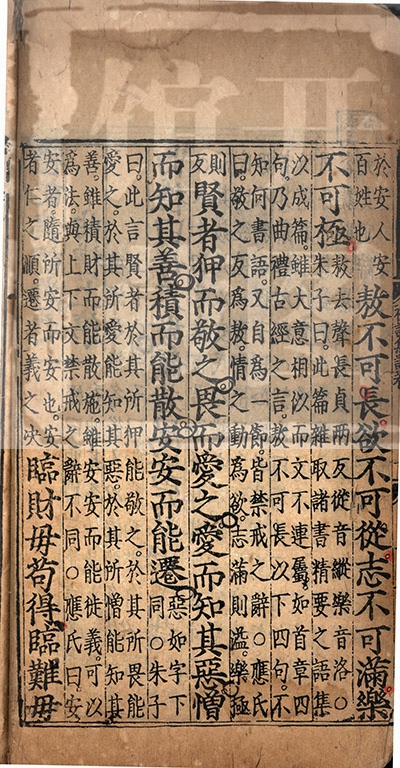 於安人安
百姓也
敖不可長欲不可從志不可滿樂
不可極
敖去聲長貞兩反從音縱樂音洛○
朱子曰此篇雜取諸書精要之語集
以成篇雖大意相似而文不連屬如首章四
句乃曲禮古經之言敖不可長以下四句不
知何書語又自爲一節皆禁戒之辭○應氏
曰敬之反爲敖情之動爲欲志滿則溢樂極
則
反
賢者狎而敬之畏而愛之愛而知其惡憎
而知其善積而能散安安而能遷
惡如字下
同○朱子
曰此言賢者於其所狎能敬之於其所畏能
愛之於其所愛能知其惡於其所憎能知其
善雖積財而能散施雖安安而能徙義可以
爲法與上下文禁戒之辭不同○應氏曰安
安者隨所安而安也安
者仁之順遷者義之決
臨財毋苟得臨難毋